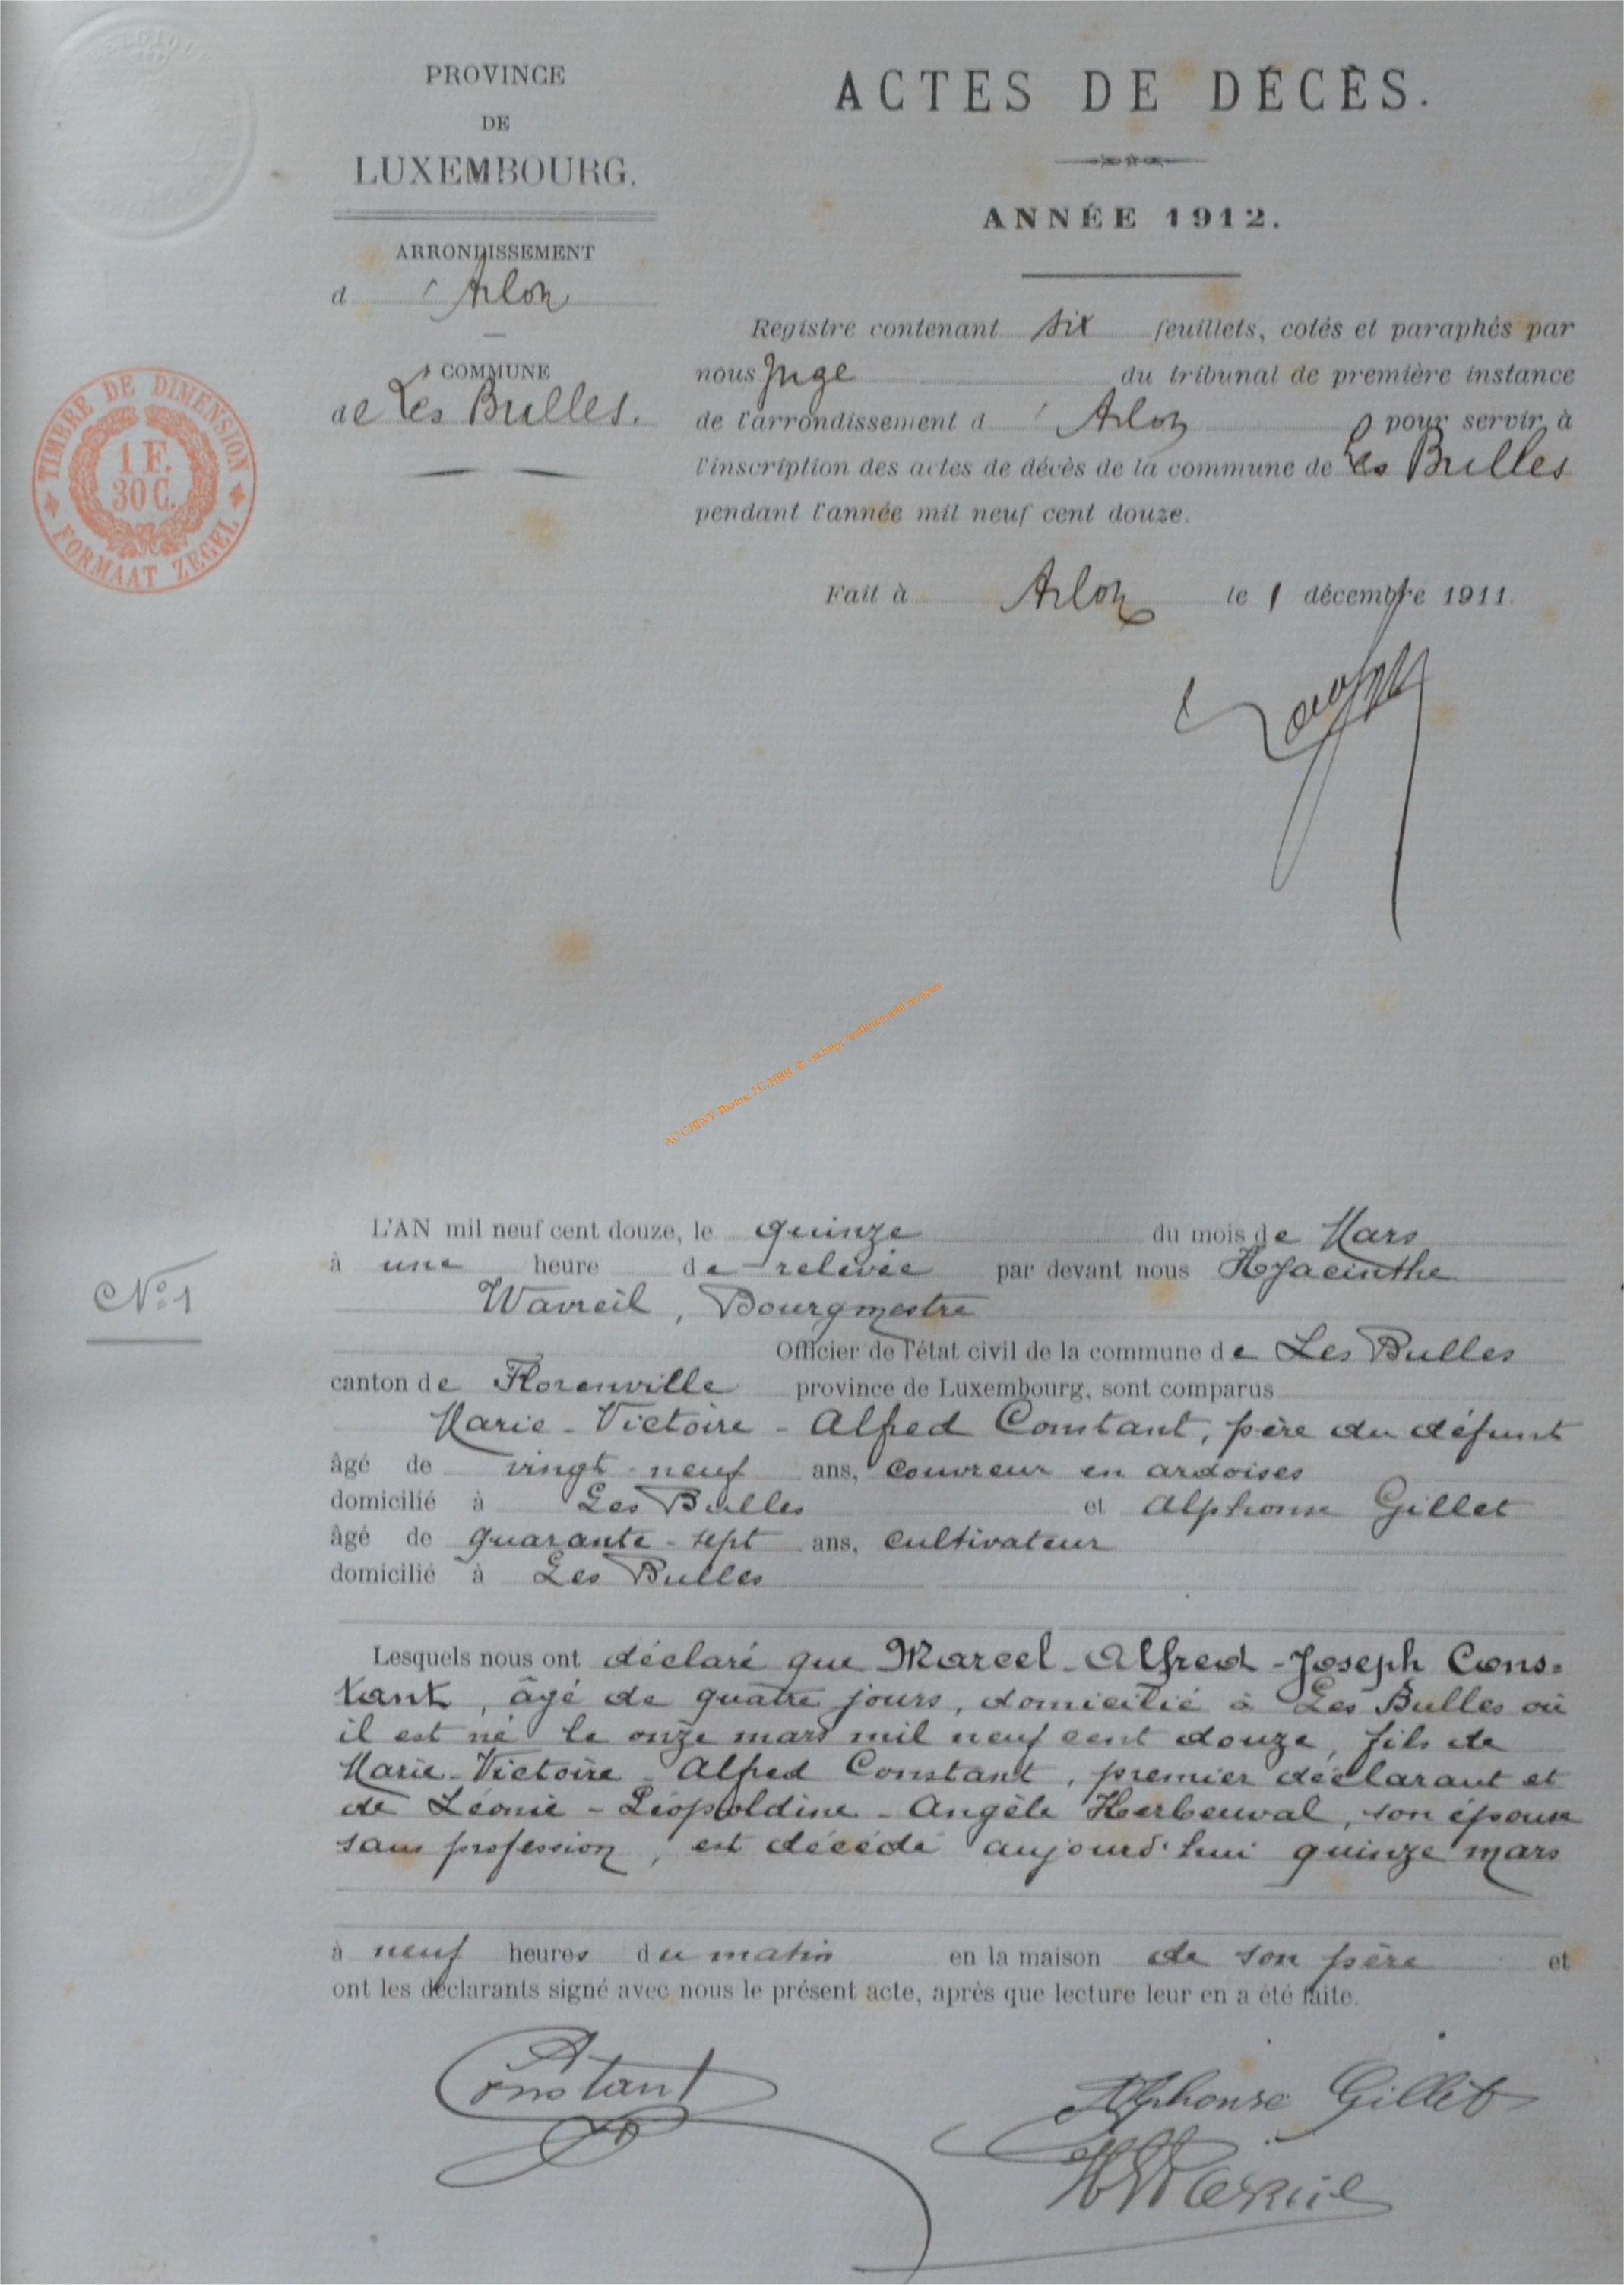 PROVINCE
DE
LUXEMBOURG.
ARRONDISSEMENT
d'Arlon
COMMUNE
de Les Bulles.
TIMBRE DE DIMENSION
1 F.
30 C.
FORMAAT ZEGEL
ACTES DE DÉCÈS.
ANNÉE 1912.
Registre contenant six feuillets, cotés et paraphés par
nous Juge du tribunal de première instance
de l'arrondissement d'Arlon pour servir à
l'inscription des actes de décès de la commune de Les Bulles
pendant l'année mil neuf cent douze.
Fait à Arlon le 1 décembre 1911.
AC CHINY Photos JC-HBH
N° 1
L'AN mil neuf cent douze, le quinze du mois de Mars
à une heure de relevée par devant nous Hyacinthe
Wavreil, Bourgmestre
Officier de l'état civil de la commune de Les Bulles
canton de Florenville province de Luxembourg, sont comparus
Marie-Victoire-Alfred Constant, père du défunt
âgé de vingt-neuf ans, couvreur en ardoises
domicilié à Les Bulles et Alphonse Gillet
âgé de quarante-sept ans, cultivateur
domicilié à Les Bulles
Lesquels nous ont déclaré que Marcel-Alfred-Joseph Cons=
tant, âgé de quatre jours, domicilié à Les Bulles où
il est né le onze mars mil neuf cent douze, fils de
Marie-Victoire-Alfred Constant, premier déclarant et
de Léonie-Léopoldine-Angèle Herbeuval, son épouse
sans profession, est décédé aujourd'hui quinze mars
à neuf heures du matin en la maison de son père et
ont les déclarants signé avec nous le présent acte, après que lecture leur en a été faite.
A Constant
Alphonse Gillet
H Wavreil